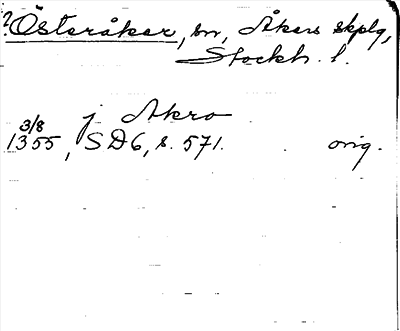 ? Österåker, sn, Åkers skplg,
Stockh. l.
j Akro
3/8
1355, SD6, s. 571. orig.